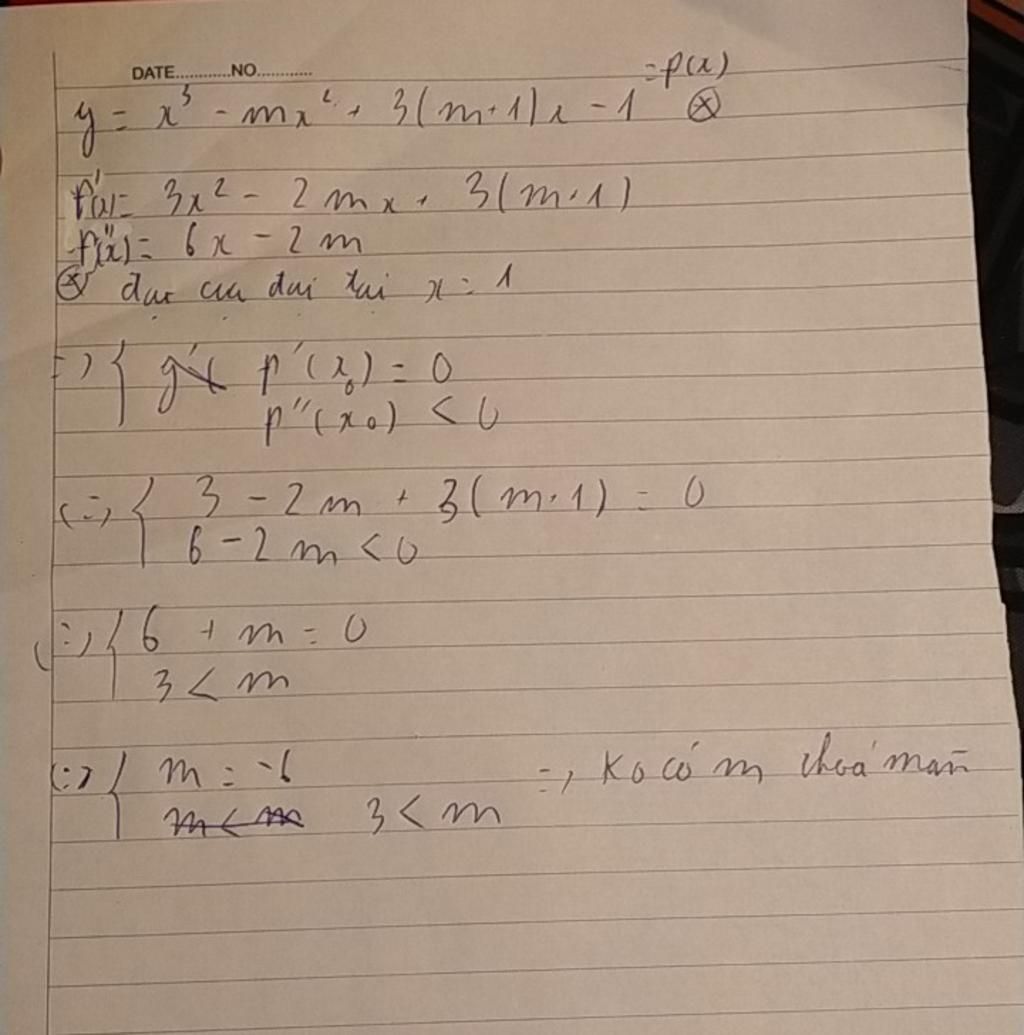 DATE............NO............
= f(x)
y = x³ - mx² + 3(m+1)x - 1 ⊗
f'(x) = 3x² - 2mx + 3(m+1)
f''(x) = 6x - 2m
⊗ đạt cực đại tại x = 1
=> { f'(x₀) = 0
f''(x₀) < 0
<=> { 3 - 2m + 3(m+1) = 0
6 - 2m < 0
<=> { 6 + m = 0
3 < m
<=> { m = -6 => Ko có m thoả mãn
m < m 3 < m